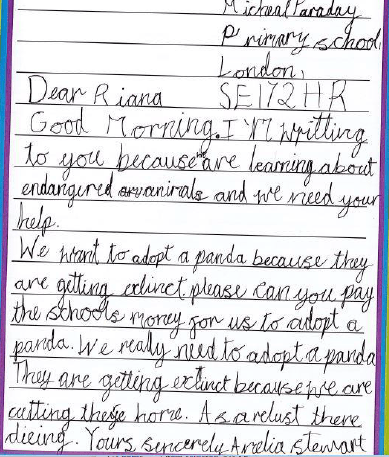 Micheal Faraday
Primary school,
London,
Dear Riana SE172HR
Good Morning. I'M Writting
to you because we are learning about
endangered animals and we need your
help.
We want to adopt a panda because they
are getting extinct. please can you pay
the schools money for us to adopt a
panda. We really need to adopt a panda
They are getting extinct because we are
cutting these home. As a relust there
dieing. Yours sencerely Amelia stewart